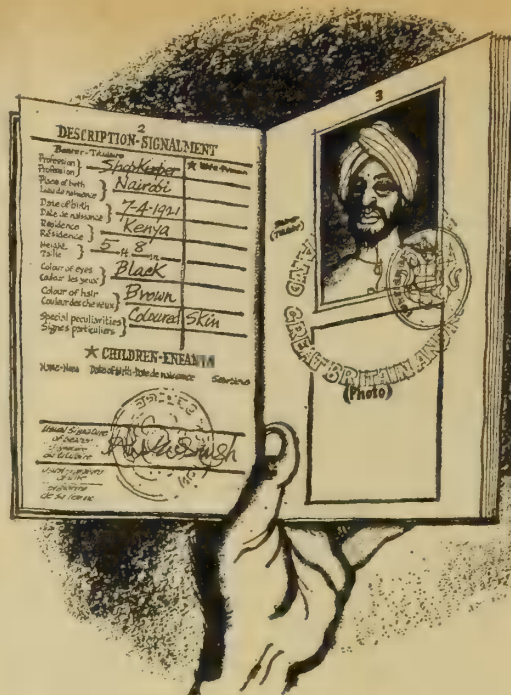 2
DESCRIPTION-SIGNALMENT
Bearer-Titulaire
Profession
Profession
Shopkeeper
Place of birth
Lieu de naissance
Nairobi
Date of birth
Date de naissance
7-4-1921
Residence
Résidence
Kenya
Height
Taille
5 ft. 8 in.
Colour of eyes
Couleur des yeux
Black
Colour of hair
Couleur des cheveux
Brown
Special peculiarities
Signes particuliers
Coloured Skin
★ CHILDREN-ENFANTS
Name-Nom Date of birth-Date de naissance
Usual signature
of bearer
Signature
du titulaire
Usual signature
of wife
Signature
de sa femme
3
AND GREAT BRITAIN AND
(Photo)